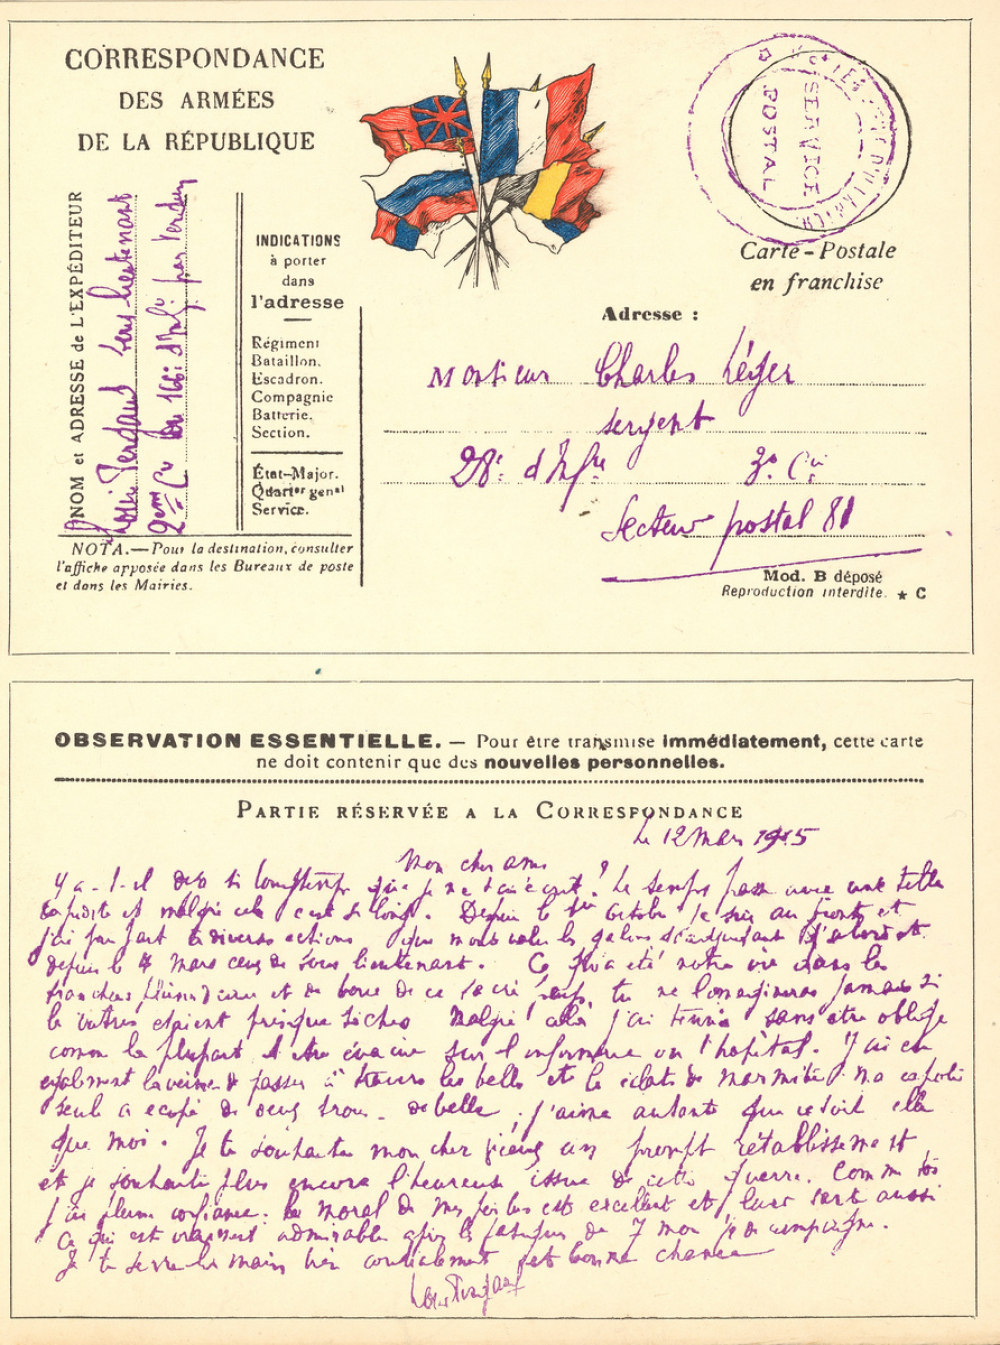 CORRESPONDANCE
DES ARMÉES
DE LA RÉPUBLIQUE
NOM et ADRESSE de L'EXPÉDITEUR
Louis Pergaud sous lieutenant
2eme Cie du 166e d'Infie par Verdun
INDICATIONS
à porter
dans
l'adresse
Régiment
Bataillon.
Escadron.
Compagnie
Batterie.
Section.
État-Major.
Quartier genal
Service.
NOTA.—Pour la destination, consulter
l'affiche apposée dans les Bureaux de poste
et dans les Mairies.
SERVICE
POSTAL
Carte-Postale
en franchise
Adresse :
Monsieur Charles Léger
sergent
28e d'Infie 3e Cie
Secteur postal 81
Mod. B déposé
Reproduction interdite. ★ C
OBSERVATION ESSENTIELLE. — Pour être transmise immédiatement, cette carte
ne doit contenir que des nouvelles personnelles.
PARTIE RÉSERVÉE A LA CORRESPONDANCE
Le 12 Mars 1915
Mon cher ami
Y a-t-il déjà si longtemps que je ne t'ai écrit ? Le temps passe avec une telle
rapidité et malgré cela c'est si long. Depuis le 1er octobre je suis au front et
j'ai pris part à diverses actions qui m'ont valu les galons d'adjudant d'abord et
depuis le 4 Mars ceux de sous lieutenant. Ce qu'a été notre vie dans les
tranchées pleines d'eau et de boue de ce sacré pays, tu ne l'imagineras jamais si
les vôtres étaient presque sèches Malgré cela j'ai tenu sans être obligé
comme la plupart d'être évacué sur l'infirmerie ou l'hôpital. J'ai eu
également la veine de passer à travers les balles et les éclats de marmite. Ma capote
seule a écopé de deux trous de balle, j'aime autant que ce soit elle
que moi. Je te souhaite mon cher vieux un prompt rétablissement
et je souhaite plus encore l'heureuse issue de cette guerre. Comme toi
j'ai pleine confiance. Le moral de mes poilus est excellent et leur sort aussi
Ce qui est vraiment admirable après les fatigues de 7 mois de campagne.
Je te serre les mains bien cordialement et bonne chance
Louis Pergaud